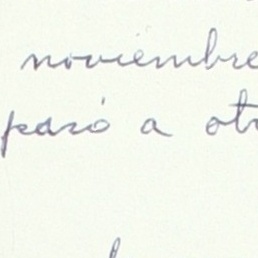 noviembre
pasó a otr